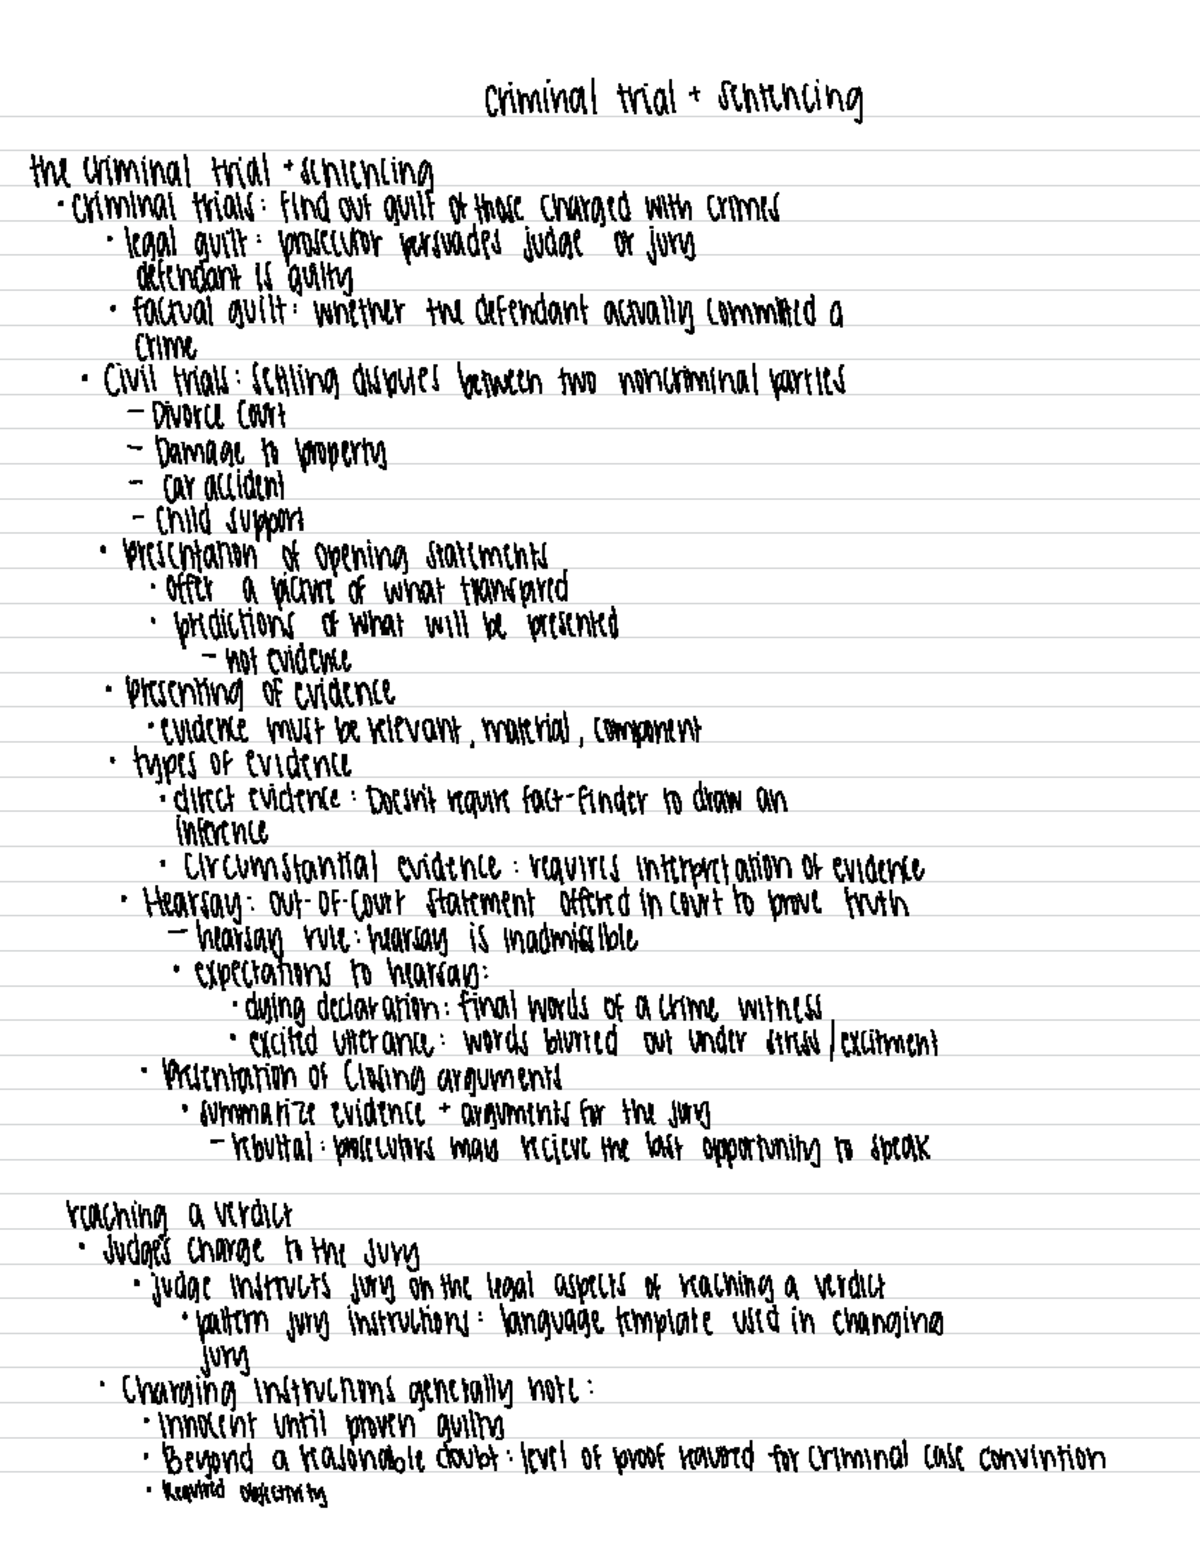 criminal trial + sentencing
the criminal trial + sentencing
• criminal trials: find out guilt of those charged with crimes
• legal guilt: prosecutor persuades judge or jury
defendant is guilty
• factual guilt: whether the defendant actually committed a
crime
• Civil trials: settling disputes between two noncriminal parties
- Divorce Court
- Damage to property
- Car accident
- Child support
• presentation of opening statements
• offer a picture of what transpired
• predictions of what will be presented
- not evidence
• presenting of evidence
• evidence must be relevant, material, component
• types of evidence
• direct evidence: Doesn't require fact-finder to draw an
inference
• Circumstantial evidence: requires interpretation of evidence
• Hearsay: out-of-court statement offered in court to prove truth
- hearsay rule: hearsay is inadmissible
• expectations to hearsay:
• dying declaration: final words of a crime witness
• excited utterance: words blurted out under stress/excitment
• Presentation of Closing arguments
• summarize evidence + arguments for the jury
- rebuttal: prosecutors may recieve the last opportunity to speak
reaching a verdict
• Judge's Charge to the Jury
• judge instructs jury on the legal aspects of reaching a verdict
• pattern jury instructions: language template used in changing
jury
• Charging instructions generally note:
• innocent until proven guilty
• Beyond a reasonable doubt: level of proof required for criminal case convintion
• Required objectivity